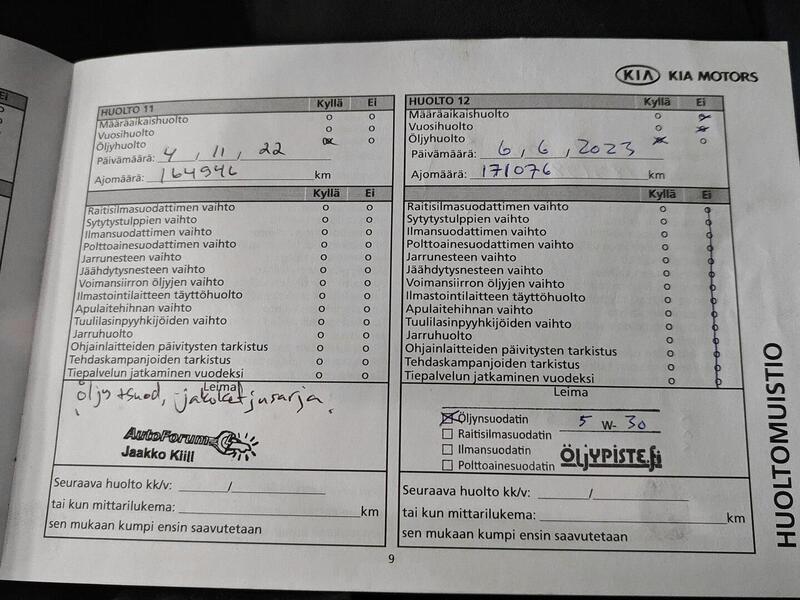 KIA KIA MOTORS
HUOLTO 11 Kyllä Ei
Määräaikaishuolto o o
Vuosihuolto o o
Öljyhuolto o
Päivämäärä: 4, 11, 22
Ajomäärä: 164946 km
Kyllä Ei
Raitisilmasuodattimen vaihto o o
Sytytystulppien vaihto o o
Ilmansuodattimen vaihto o o
Polttoainesuodattimen vaihto o o
Jarrunesteen vaihto o o
Jäähdytysnesteen vaihto o o
Voimansiirron öljyjen vaihto o o
Ilmastointilaitteen täyttöhuolto o o
Apulaitehihnan vaihto o o
Tuulilasinpyyhkijöiden vaihto o o
Jarruhuolto o o
Ohjainlaitteiden päivitysten tarkistus o o
Tehdaskampanjoiden tarkistus o o
Tiepalvelun jatkaminen vuodeksi o o
Leima
öljy+suod, jakoketjusarja.
AutoForum
Jaakko Kiili
Seuraava huolto kk/v: /
tai kun mittarilukema: km
sen mukaan kumpi ensin saavutetaan
HUOLTO 12 Kyllä Ei
Määräaikaishuolto o
Vuosihuolto o
Öljyhuolto o
Päivämäärä: 6, 6, 2023
Ajomäärä: 171076 km
Kyllä Ei
Raitisilmasuodattimen vaihto o o
Sytytystulppien vaihto o o
Ilmansuodattimen vaihto o o
Polttoainesuodattimen vaihto o o
Jarrunesteen vaihto o o
Jäähdytysnesteen vaihto o o
Voimansiirron öljyjen vaihto o o
Ilmastointilaitteen täyttöhuolto o o
Apulaitehihnan vaihto o o
Tuulilasinpyyhkijöiden vaihto o o
Jarruhuolto o o
Ohjainlaitteiden päivitysten tarkistus o o
Tehdaskampanjoiden tarkistus o o
Tiepalvelun jatkaminen vuodeksi o o
Leima
Öljynsuodatin 5 W- 30
Raitisilmasuodatin
Ilmansuodatin
Polttoainesuodatin
ÖLJYPISTE.fi
Seuraava huolto kk/v: /
tai kun mittarilukema: km
sen mukaan kumpi ensin saavutetaan
HUOLTOMUISTIO
9